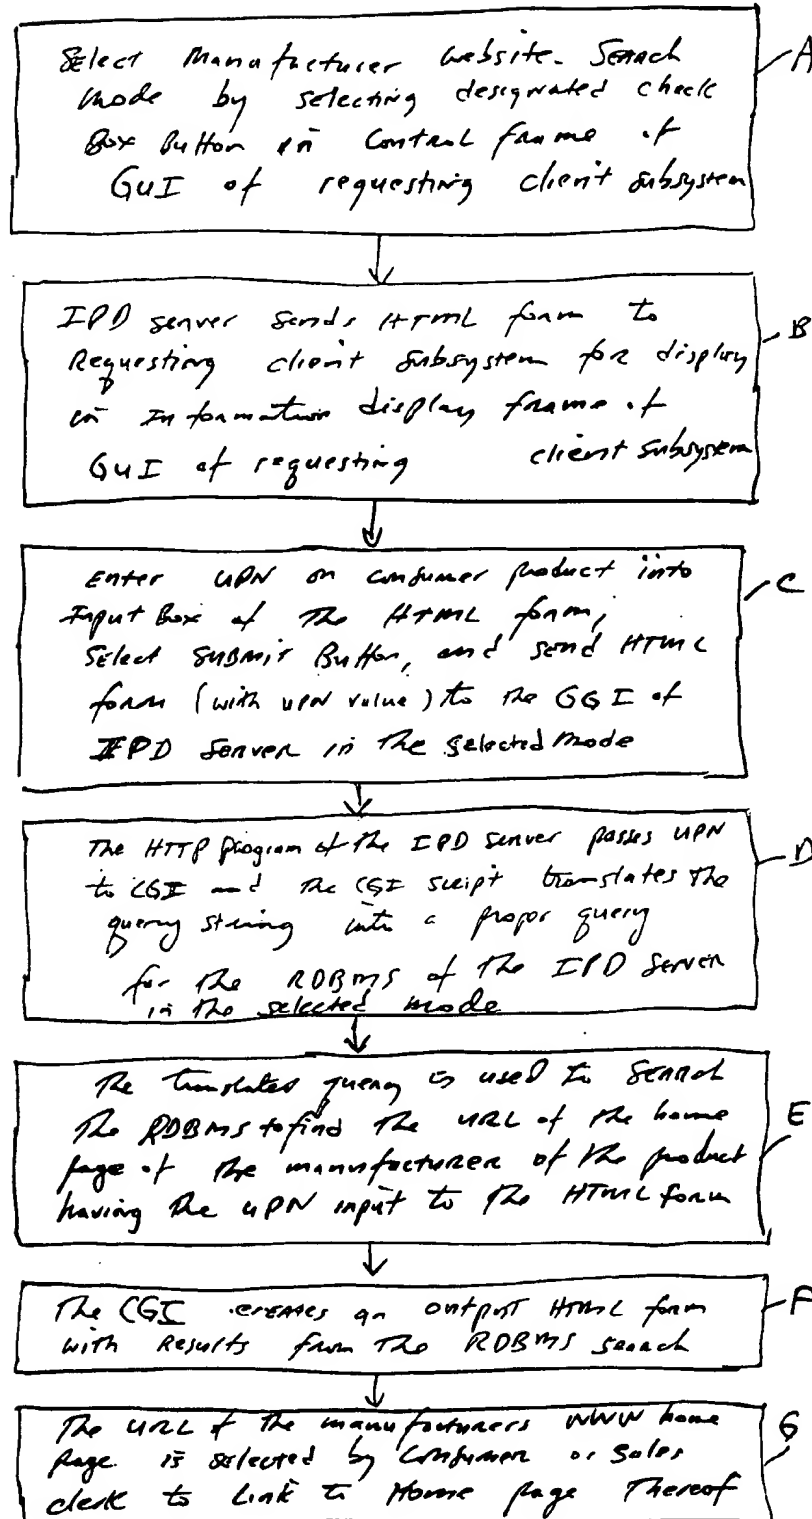 Select Manufacturer website. Search
mode by selecting designated check
Box Button in Control frame of
GUI of requesting client subsystem
A
IPD server sends HTML form to
Requesting client subsystem for display
in Information display frame of
GUI of requesting client subsystem
B
Enter UPN on consumer product into
Input Box of the HTML form,
Select SUBMIT Button, and send HTML
form (with UPN value) to the GGI of
IPD Server in the selected mode
C
The HTTP program of the IPD Server passes UPN
to CGI and the CGI script translates the
query string into a proper query
for the RDBMS of the IPD Server
in the selected mode
D
The translated query is used to Search
The RDBMS to find the URL of the home
page of the manufacturer of the product
having the UPN input to the HTML form
E
The CGI creates an output HTML form
with Results from the RDBMS search
F
The URL of the manufacturers WWW home
Page is selected by Consumer or Sales
clerk to Link to Home page Thereof
G